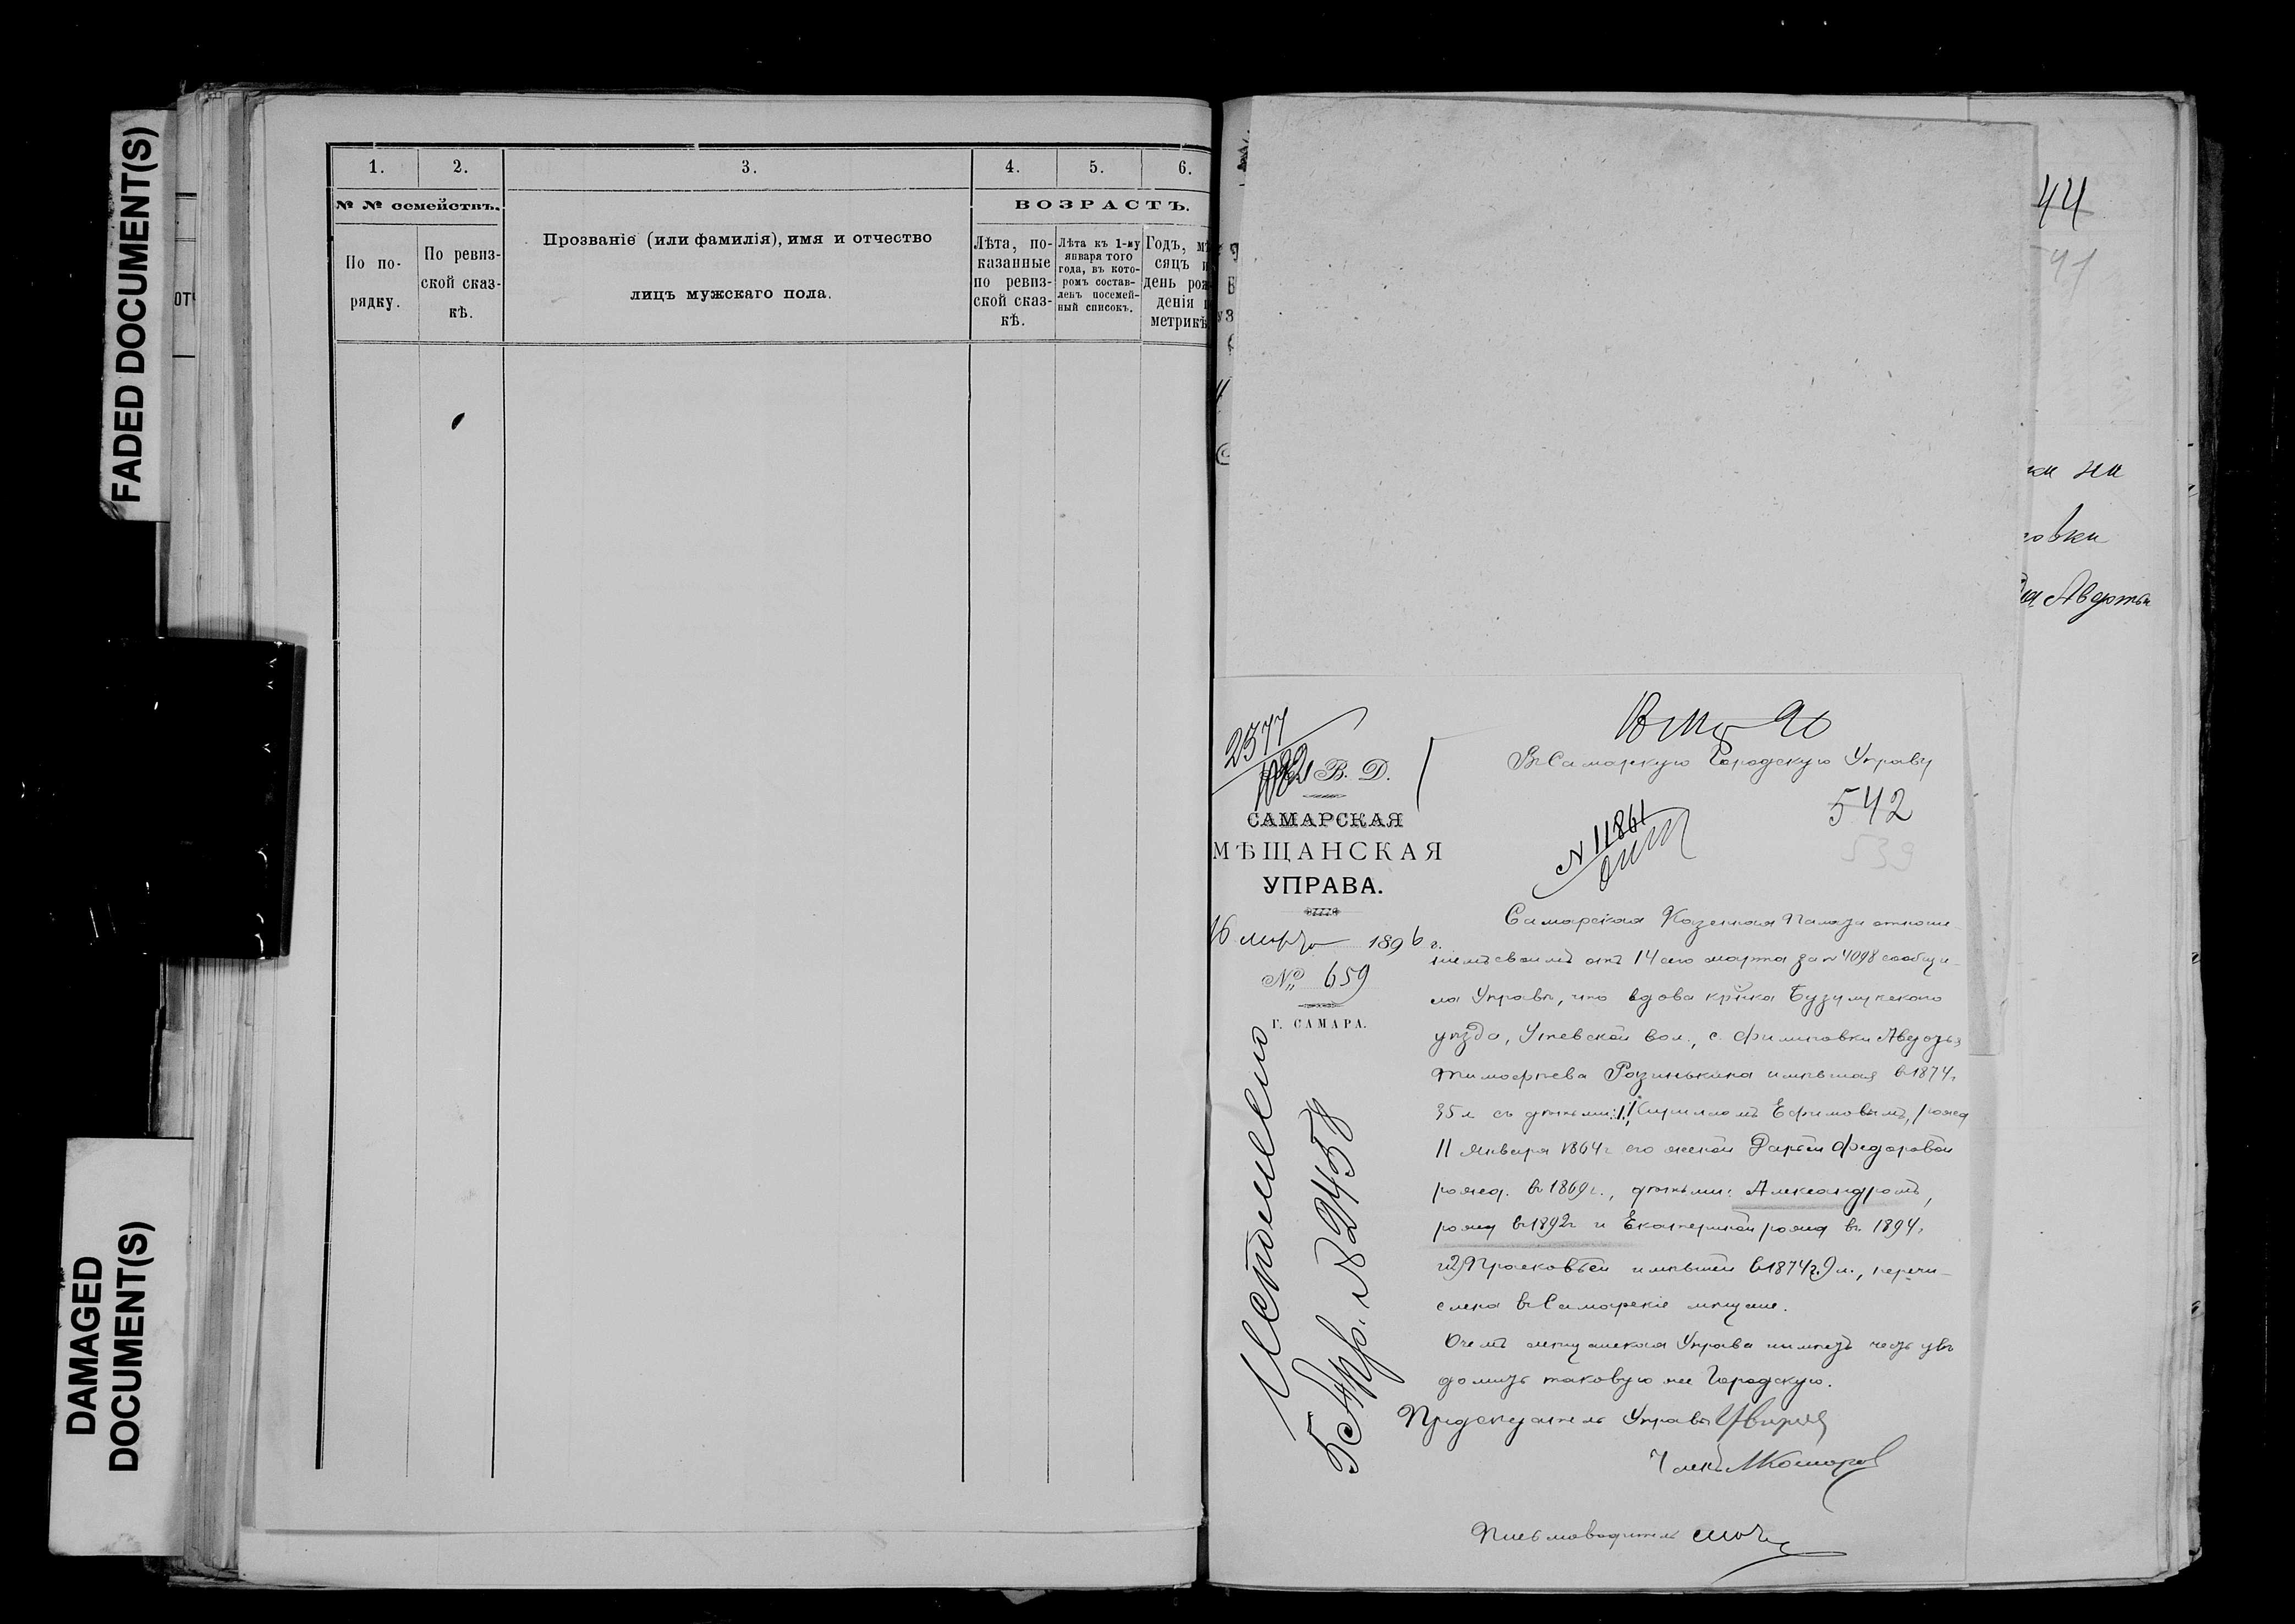 FADED DOCUMENT(S)
DAMAGED
DOCUMENT(S)
1. 2. 3. 4. 5. 6.
№ № семействъ.
По по-
рядку.
По ревиз-
ской сказ-
кѣ.
Прозваніе (или фамилія), имя и отчество
лицъ мужскаго пола.
ВОЗРАСТЪ.
Лѣта, по-
казанные
по ревиз-
ской сказ-
кѣ.
Лѣта къ 1-му
января того
года, въ кото-
ромъ состав-
ленъ посемей-
ный списокъ.
Годъ, мѣ
сяцъ и
день рож
денія п
метрикѣ
44
41
ки на
говки
Авдотьи
2377
В. Д.
САМАРСКАЯ
МѢЩАНСКАЯ
УПРАВА.
16 марта 1896 г.
№ 659
Г. САМАРА.
Исполнено
5 Апр. № 2458
Въ Самарскую Городскую Управу
542
539
N 11861
Самарская Казенная Палата отноше-
ніемъ своимъ отъ 14 сего марта за N 4098 сообщи-
ла Управѣ, что вдова кр-нка Бузулукскаго
уѣзда, Утевской вол., с. Филиповки Авдотья
Тимофѣева Разинькина имѣвшая въ 1874 г.
35 л. съ дѣтьми: 1, Кирилломъ Ефимовымъ, рожд
11 января 1864 г. его женой Дарьей Федоровой
рожд. въ 1869 г., дѣтьми: Александромъ,
рожд въ 1892 г и Екатериной рожд въ 1894.
и 2, Прасковьей имѣвшей въ 1874 г. 9 л., перечи-
слена въ Самарскіе мѣщане.
О чемъ мѣщанская Управа имѣетъ честь увѣ
домить таковую же Городскую.
Предсѣдатель Управы
Членъ
Письмоводитель